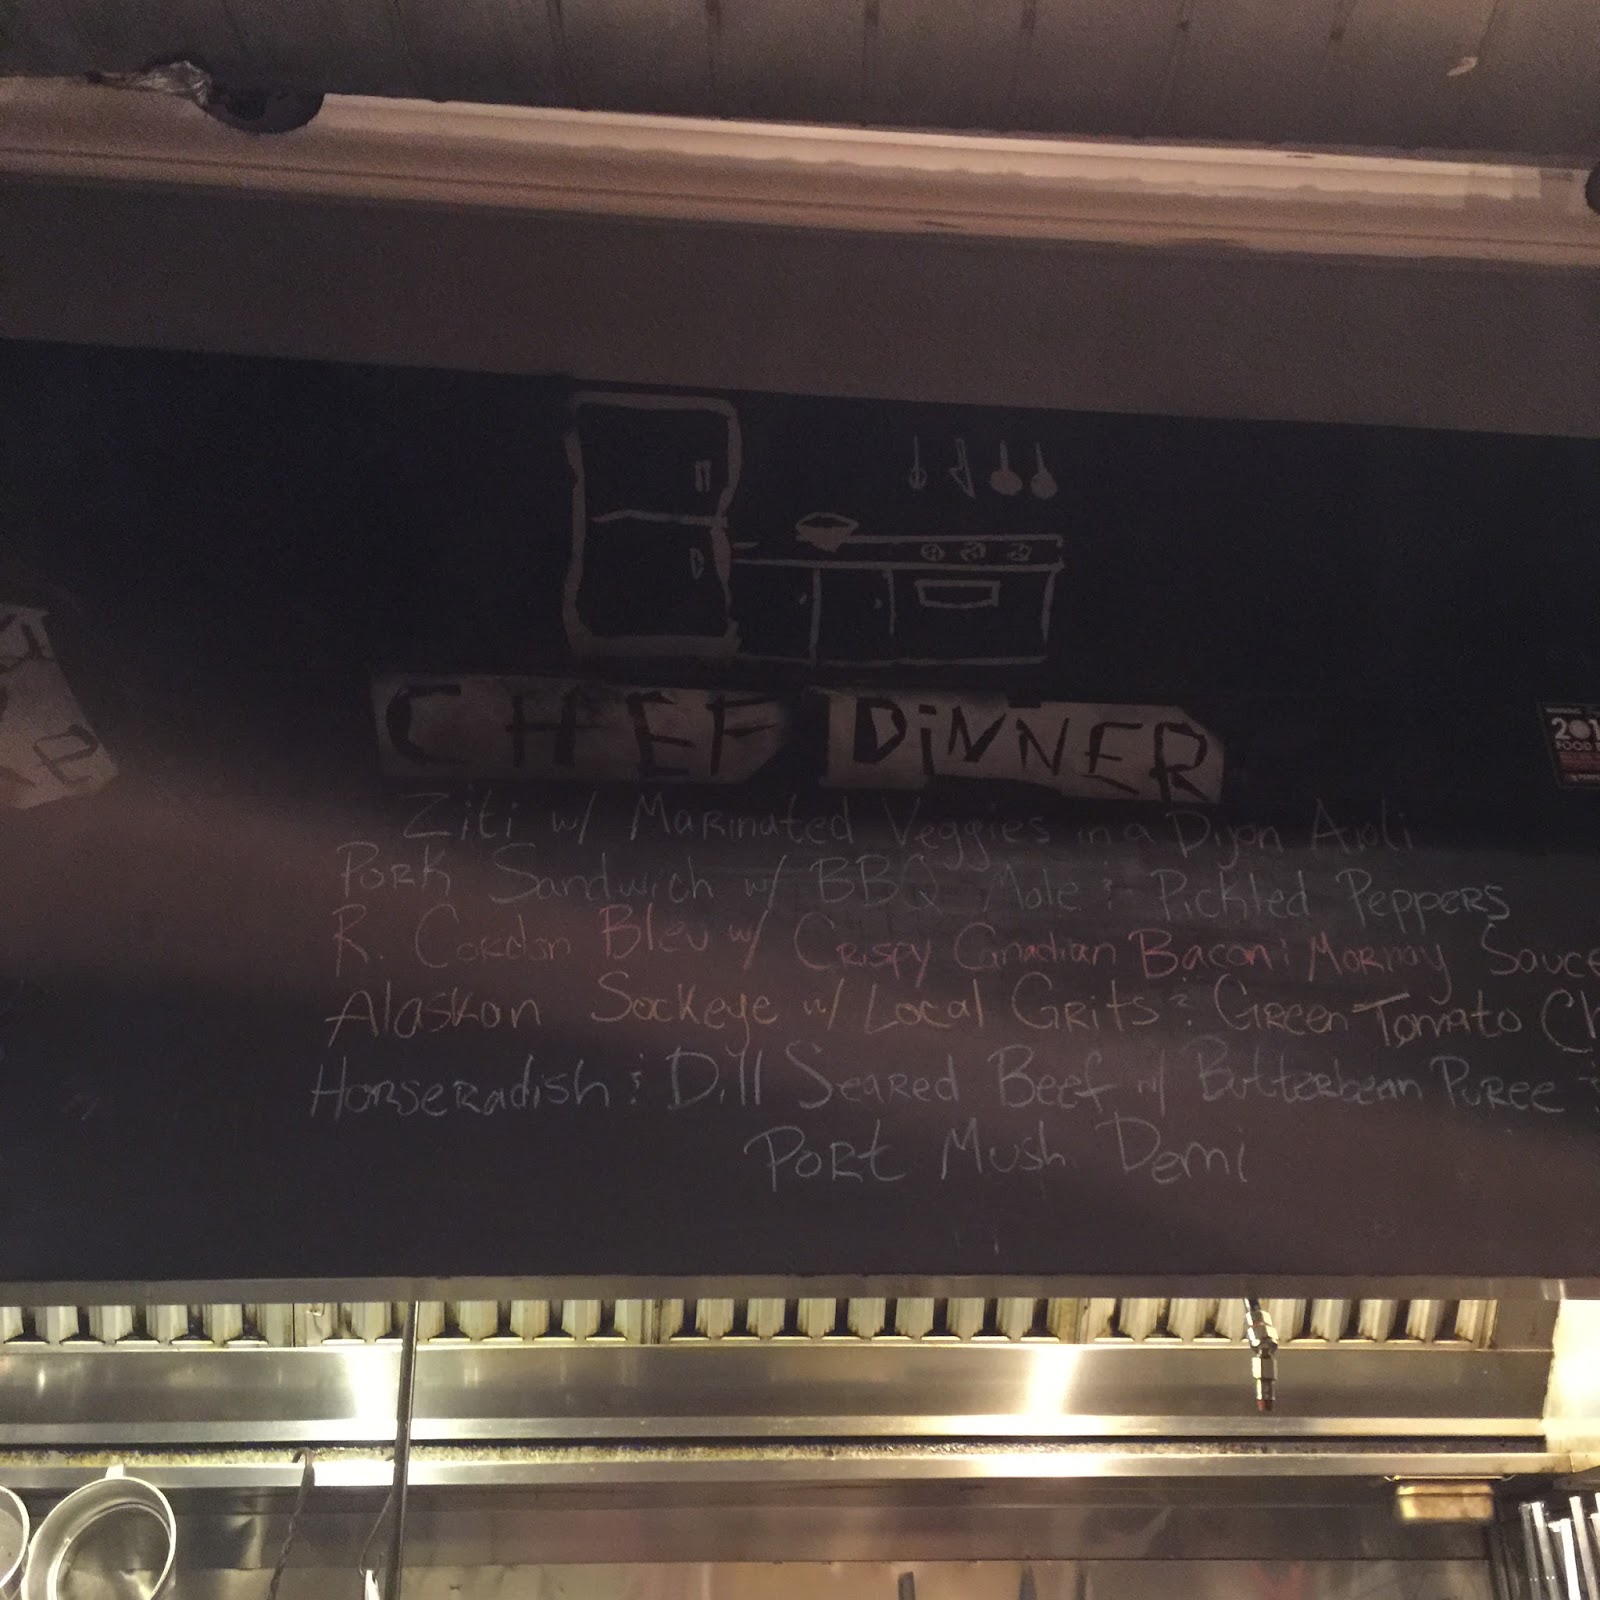 CHEF DINNER
Ziti w/ Marinated Veggies in a Dijon Aioli
Pork Sandwich w/ BBQ Mole & Pickled Peppers
R. Cordon Bleu w/ Crispy Canadian Bacon & Mornay Sauce
Alaskan Sockeye w/ Local Grits & Green Tomato Ch
Horseradish & Dill Seared Beef w/ Butterbean Puree &
Port Mush Demi
201
FOOD